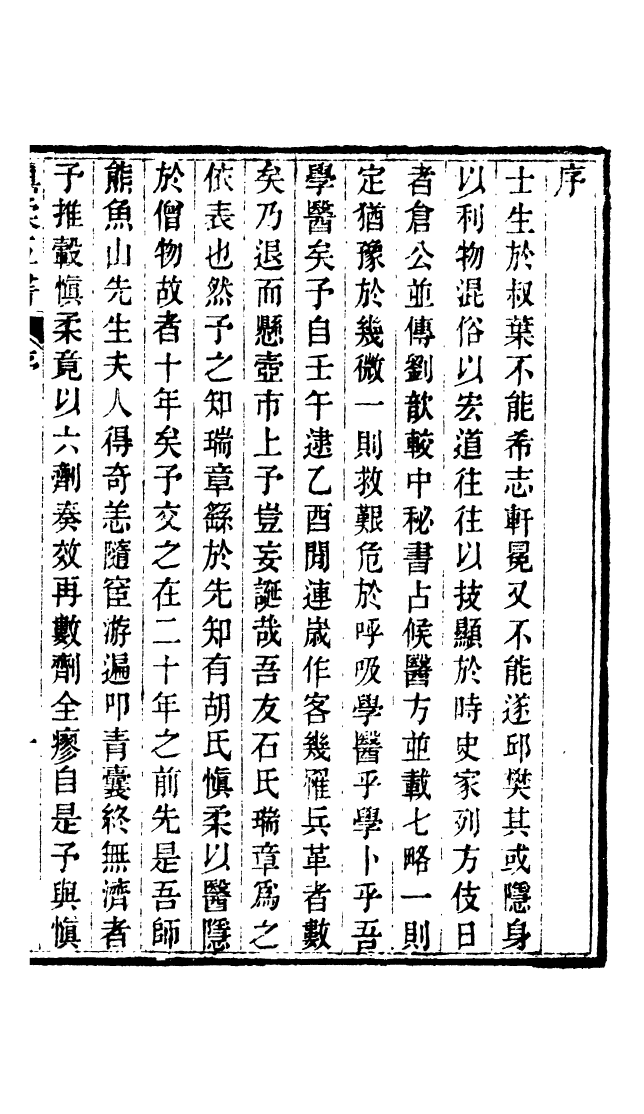 序
士生於叔葉不能希志軒冕又不能遂邱樊其或隱身
以利物混俗以宏道往往以技顯於時史家列方伎日
者倉公並傳劉歆較中秘書占候醫方並載七略一則
定猶豫於幾微一則救艱危於呼吸學醫乎學卜乎吾
學醫矣予自壬午逮乙酉閒連歲作客幾罹兵革者數
矣乃退而懸壺市上予豈妄誕哉吾友石氏瑞章為之
依表也然予之知瑞章繇於先知有胡氏慎柔以醫隱
於僧物故者十年矣予交之在二十年之前先是吾師
熊魚山先生夫人得奇恙隨宦游遍叩青囊終無濟者
予推轂慎柔竟以六劑奏效再數劑全瘳自是予與慎
序 一